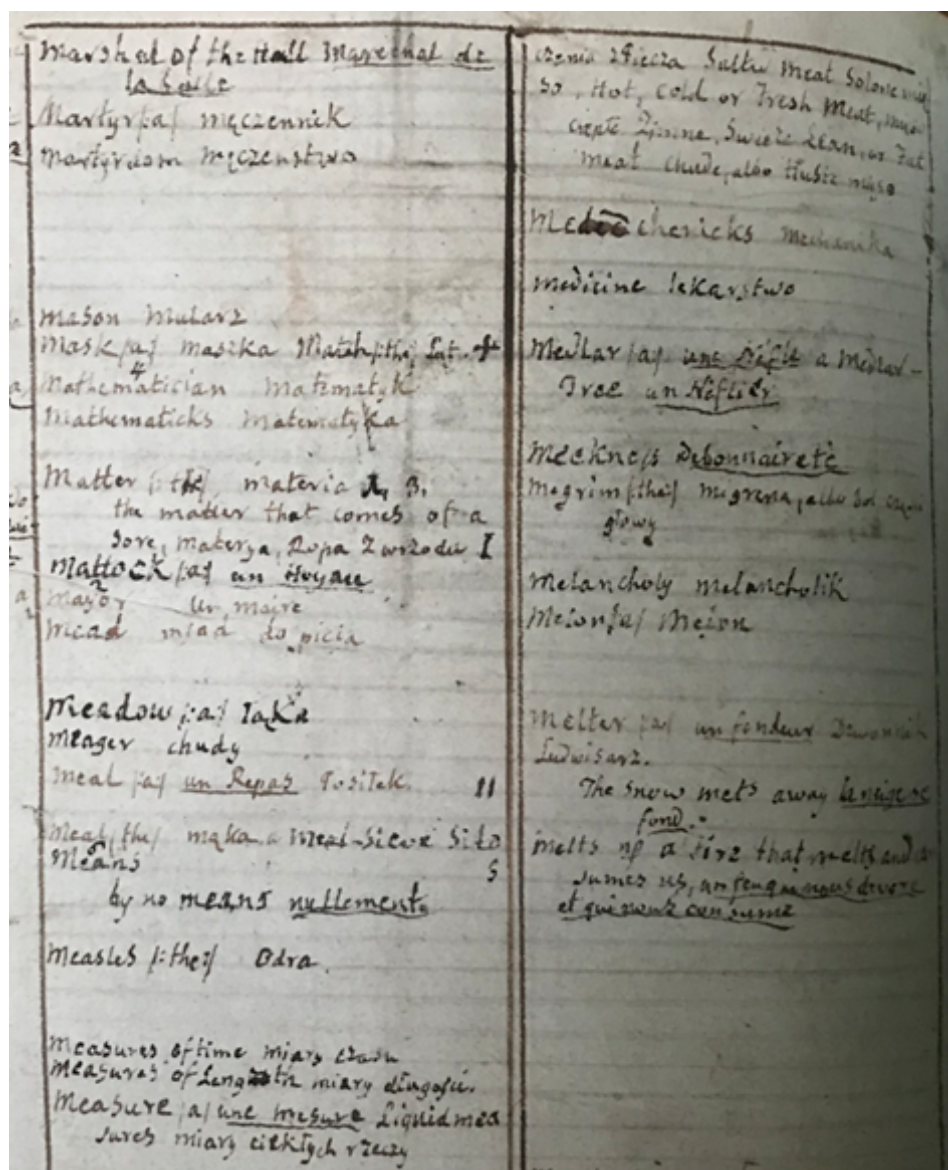 Marshal of the Hall Marechal de
la Salle
Martyr /:a:/ męczennik
Martyrdom męczenstwo
Mason Mularz
Mask /:a:/ maszka Match /:the:/
Mathematician Matematyk
Mathematicks Matematyka
Matter /:the:/ materia 1, B.
the matter that comes of a
sore, materya, Ropa z wrzodu I
Mattock /:a:/ un Hoyau
Mayor un maire
Mead miad do picia
Meadow /:a:/ Łąka
Meager chudy
Meal /:a:/ un Repas Posiłek. II
Meal /:the:/ mąka a Meal-Sieve Sito
Means 5
by no means nullement.
Measles /:the:/ Odra.
Measures of time miary czasu
Measures of Length miary długości.
Measure /:a:/ une mesure Liquid mea
sures miary ciekłych rzeczy
Salted Meat Solone mię
so, Hot, Cold or Fresh Meat, mięso
ciepłe Zimne, Swieże Lean, or Fat
meat chude, albo tłuste mięso
Mechenicks Mechanika
Medicine lekarstwo
Medlar /:a:/ une Néfle a Medlar-
Tree un Néflier
Meekness Debonnaireté
Megrim /:the:/ migrena, albo bol
głowy
Melancholy melancholik
Melon /:a:/ Melon
Melter /:a:/ un fondeur Dzwonnik
Ludwisarz.
The snow mets away la neige se
fond.
Melts a fire that melts and
sumes us, un feu qui nous devore
et qui nous consume